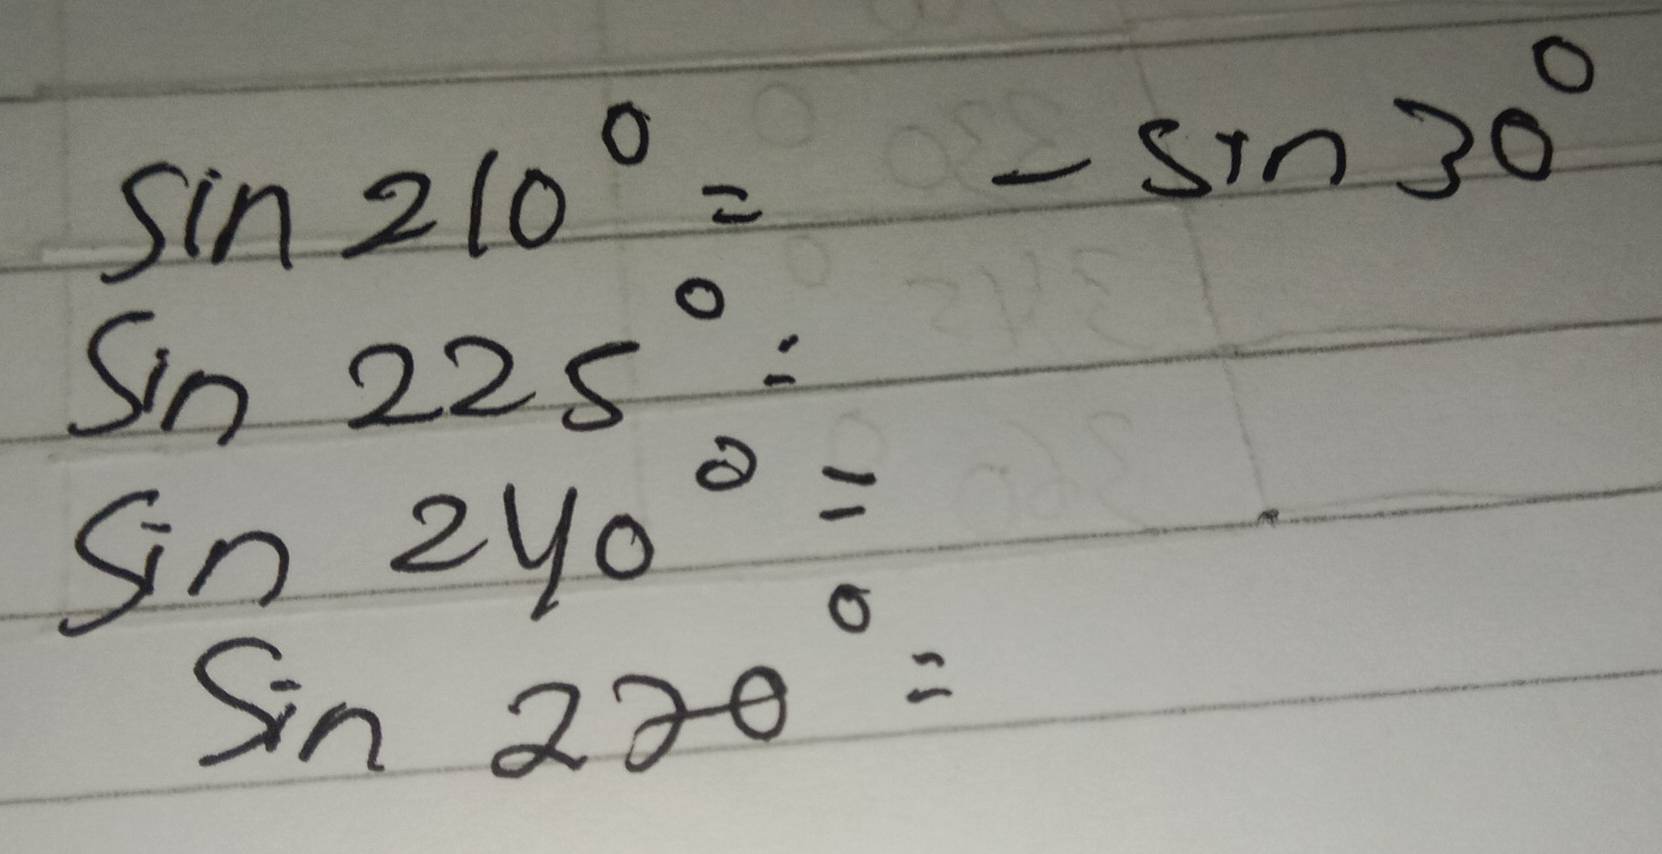 sin 210° = - sin 30°
Sin 225° =
Sin 240° =
Sin 270° =